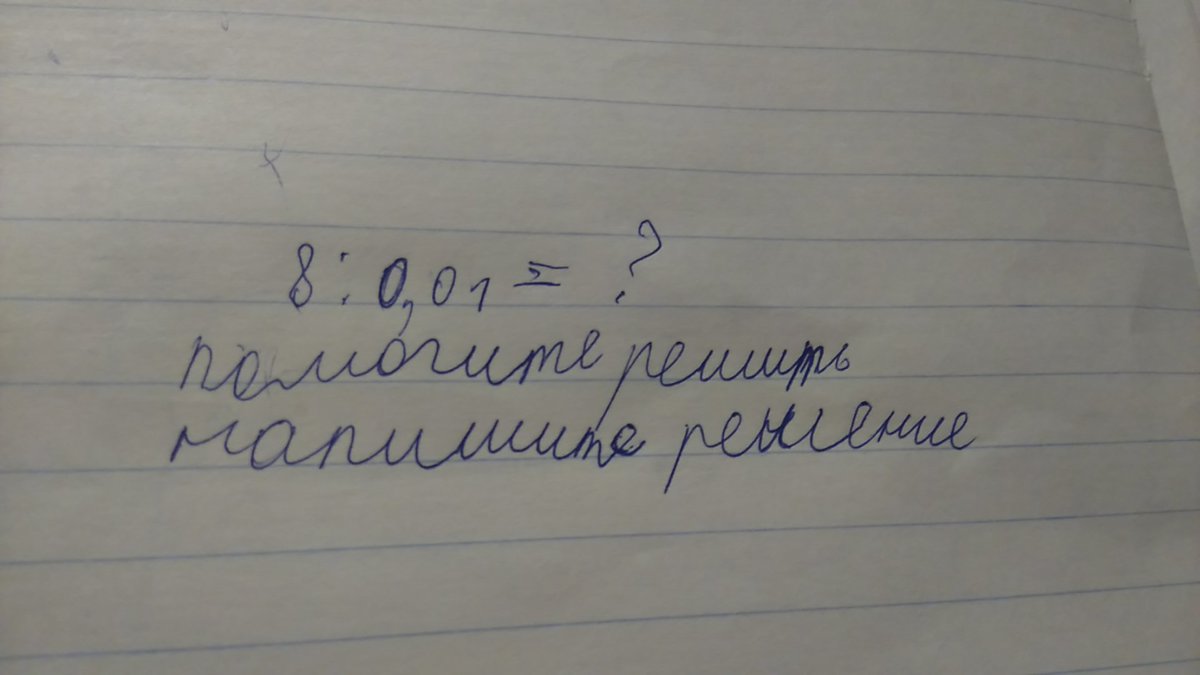 8 : 0,01 = ?
помогите решить
напишите решение